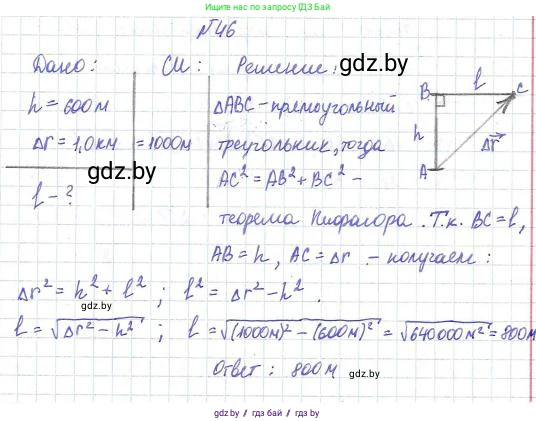 Пишите нам по запросу ГДЗ бай
№46
Дано: СИ: Решение:
gdz.by
h = 600м
Δr = 1,0км = 1000м
gdz.by
l - ?
ΔABC - прямоугольный
треугольник, тогда
gdz.by
AC² = AB² + BC² -
теорема Пифагора. Т.к. BC = l,
AB = h, AC = Δr - получаем:
B l C
h
Δr
A
Δr² = h² + l²; l² = Δr² - h².
gdz.by
l = √(Δr² - h²); l = √((1000м)² - (600м)²) = √(640000м²) = 800м
Ответ: 800м
gdz.by
gdz.by / гдз бай / gdz.by